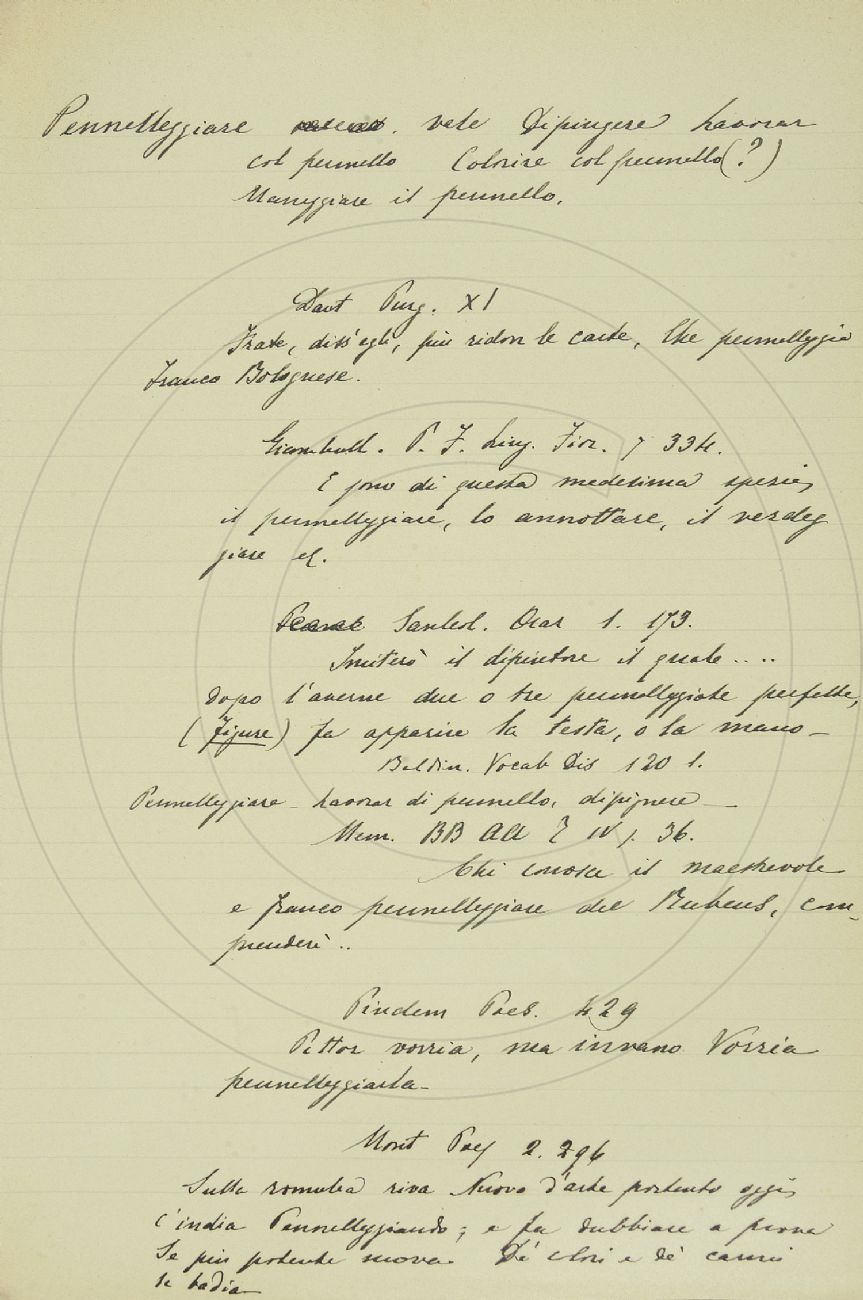 Pennelleggiare vale Dipingere Lavorar
col pennello Colorire col pennello (?)
Maneggiare il pennello.
Dant Purg. XI
Frate, diss'egli, più ridon le carte, Che pennelleggia
Franco Bolognese.
Giambull. P. F. Ling. Fior. 7 334.
E sono di questa medesima spezie,
il pennelleggiare, lo annottare, il verdeg
giare ec.
Segner. Mann. 1. 173.
Imiterò il dipintore il quale ....
Dopo l'averne due o tre pennelleggiate perfette,
(figure) fa apparire la testa, o la mano –
Baldin. Vocab Dis 120 1.
Pennelleggiare – Lavorar di pennello, dipignere –
Mem. BB AA IV p. 36.
Chi conosce il maestrevole
e franco pennelleggiare del Rubens, com-
prenderà ..
Pindem Poes. 429
Pittor vorria, ma invano Vorria
pennelleggiarla –
Mont Poes 2. 296
Sulla romulea riva Nuovo d'arte portento oggi
Pennelleggiando; e fa dubbiare a prova
Se più potente mova De' colori e de' carmi